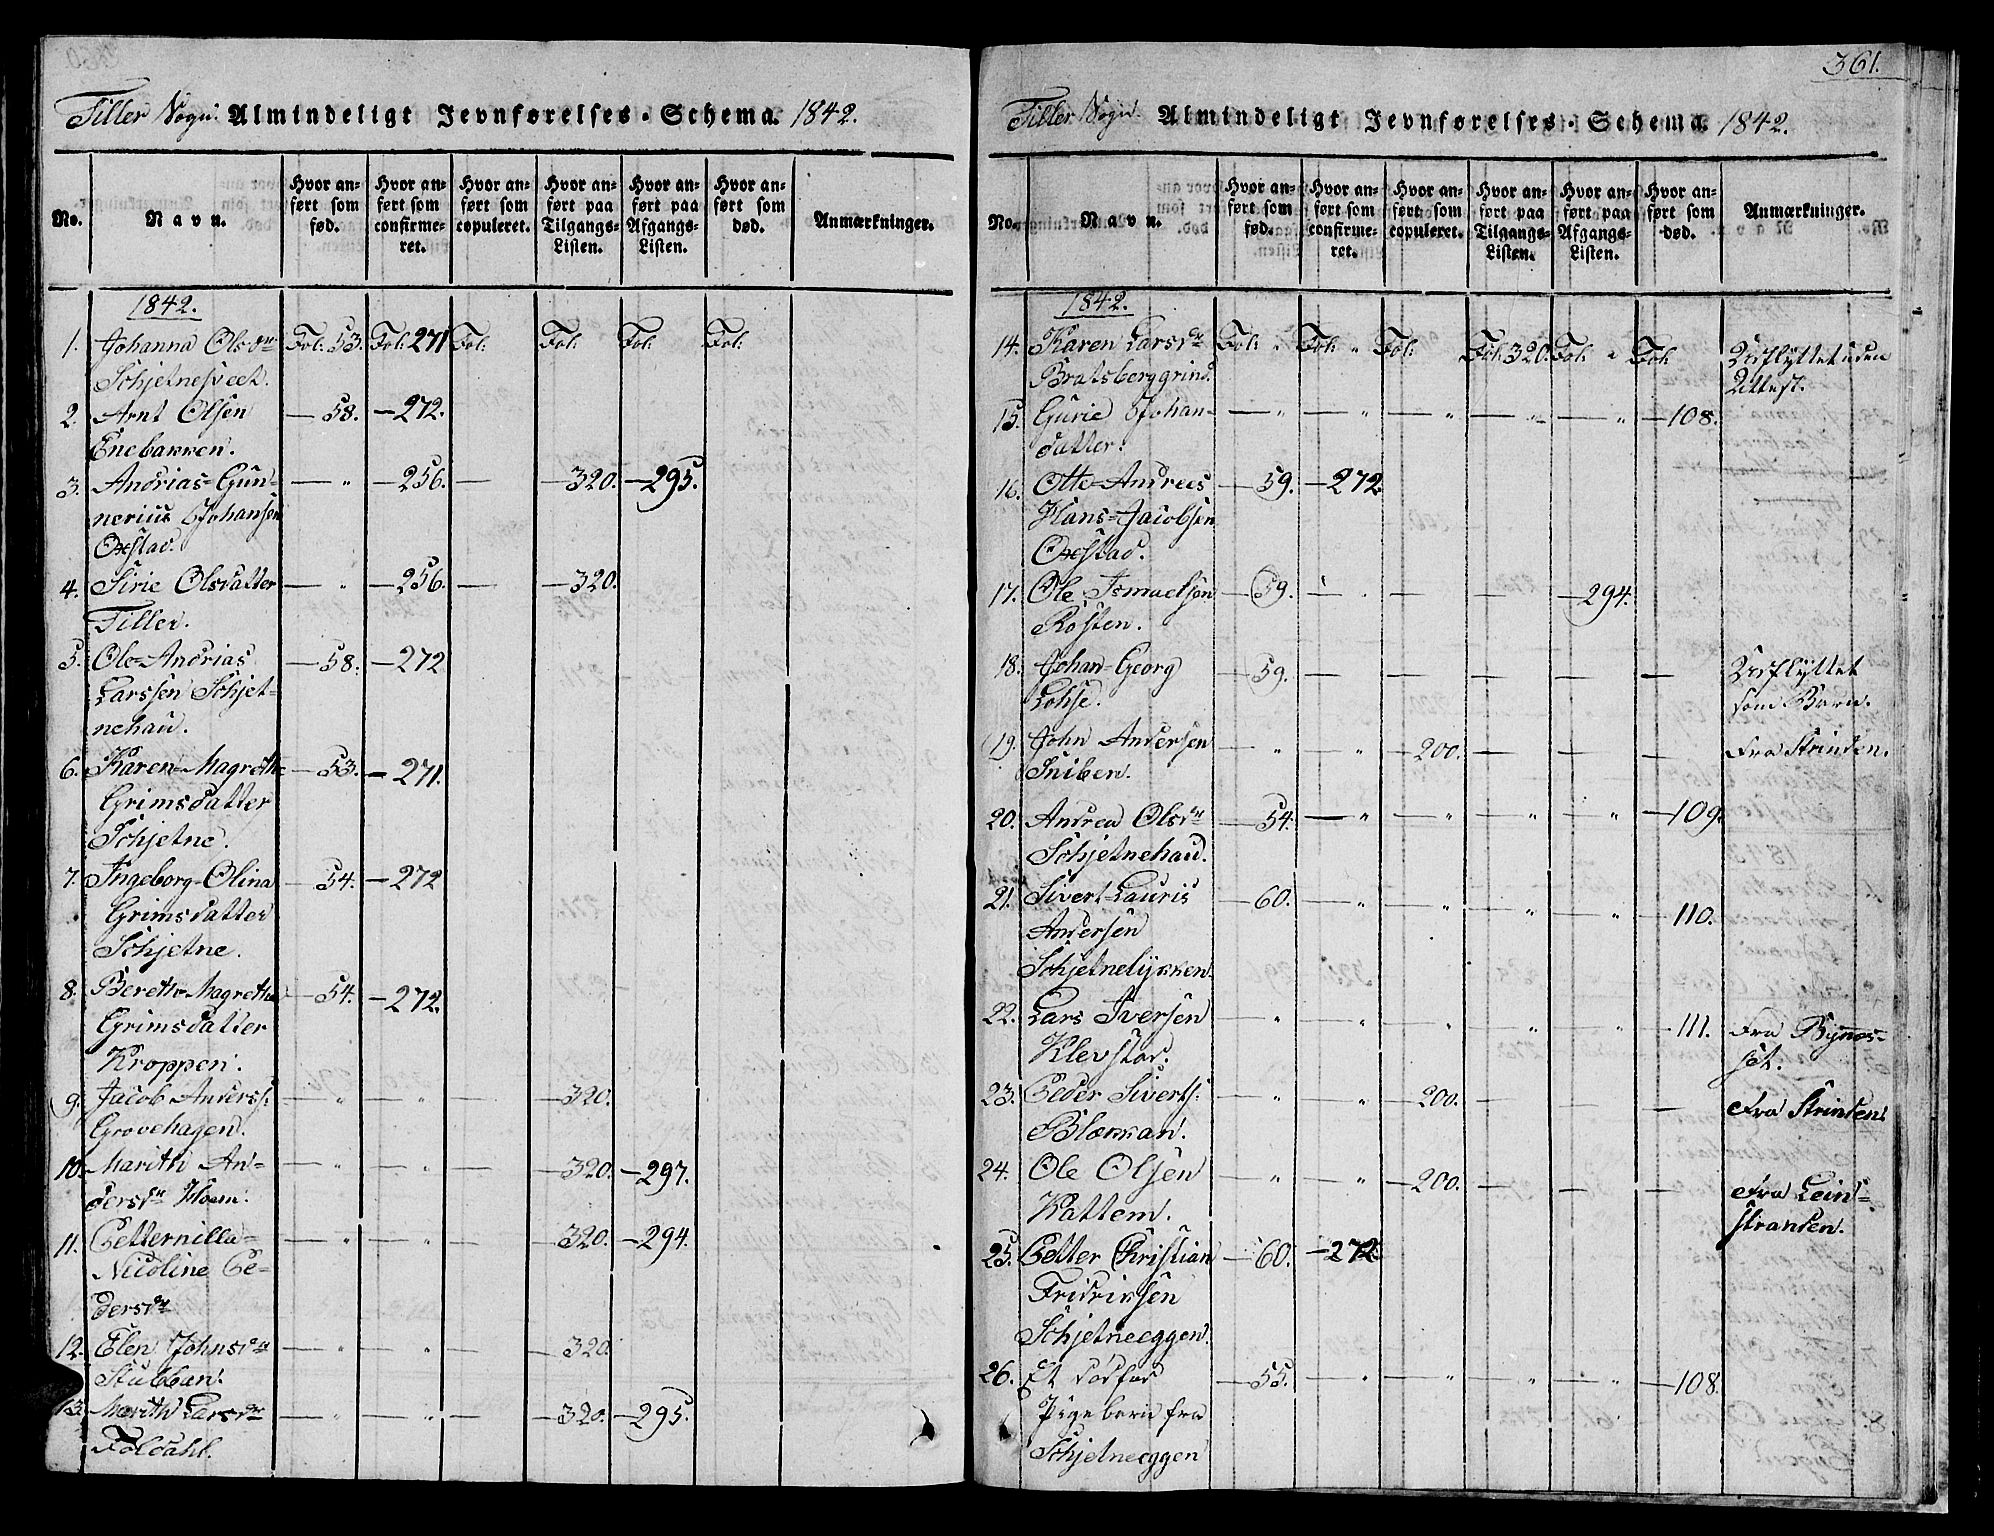 Tiller Sogn: Almindeligt Jevnførelses-Schema. 1842.
No. Navn. Hvor anført som fød. Hvor anført som confirmeret. Hvor anført som copuleret. Hvor anført paa Tilgangs-Listen. Hvor anført paa Afgangs-Listen. Hvor anført som død. Anmærkninger.
1842.
1. Johanna Olsdr Fol: 53. Fol: 271 Fol: Fol: Fol: Fol:
Schjetnesveet.
2. Arnt Olsen — 58. — 272.
Enebakken.
3. Andrias=Gun- — " — 256. — — 320. — 295.
nerius Johansen
Oxstad.
4. Sirie Olsdatter — " — 256. — — 320.
Tiller.
5. Ole=Andrias — 58. — 272
Larssen Schjet-
nehau.
6. Karen=Magrethe — 53. — 271.
Grimsdatter
Schjetne.
7. Ingeborg-Olina — 54. — 272
Grimsdatter
Schjetne.
8. Berethe Magrethe — 54. — 272.
Grimsdatter
Kroppen.
9. Jacob Anderss: — " — " — — 320.
Grovehagen.
10. Marith An- — " — " — — 320. — 297.
dersdr Hoem.
11. Petternilla- — " — " — — 320. — 294.
Nicoline Pe-
dersdr
12. Elen Johnsdr — " — " — — 320.
Stubban.
13. Marith Larsdr — " — " — — 320. — 295.
Foldahl.
361.
Tiller Sogn: Almindeligt Jevnførelses-Schema. 1842.
No. Navn. Hvor anført som fød. Hvor anført som confirmeret. Hvor anført som copuleret. Hvor anført paa Tilgangs-Listen. Hvor anført paa Afgangs-Listen. Hvor anført som død. Anmærkninger.
1842.
14. Karen Larsdr Fol: " Fol: " Fol: Fol: 320. Fol: " Fol: Udflyttet uden
Bratsberggrind. Attest.
15. Gurie Johan- — " — " — " — " — " — 108.
datter.
16. Otte=Andreas — 59. — 272.
Hans=Jacobsen
Oxstad.
17. Ole Ismaelsen — 59. — — — — 294.
Rosten.
18. Johan=Georg — 59. — — — — — Udflyttet
Lohse. som Barn.
19. John Andersen — " — " — 200. — — — Fra Strinden.
Sniben.
20. Andrea Olsdr — 54. — " — " — " — " — 109.
Schjetnehau.
21. Sivert=Lauris — 60. — " — " — " — " — 110.
Andersen
Schjetnelykken.
22. Lars Iversen — " — " — " — " — " — 111. Fra Bynæs-
Klevstad. set.
23. Peder Siverts: — " — " — 200. — — — Fra Strinden.
Blækkan.
24. Ole Olsen — " — " — 200. — — — Fra Lein-
Kattem. stranden.
25. Petter Christian — 60. — 272.
Fridriksen
Schjetneeggen.
26. Et dødfød — 55. — " — " — " — " — 108.
Pigebarn fra
Schjetneeggen